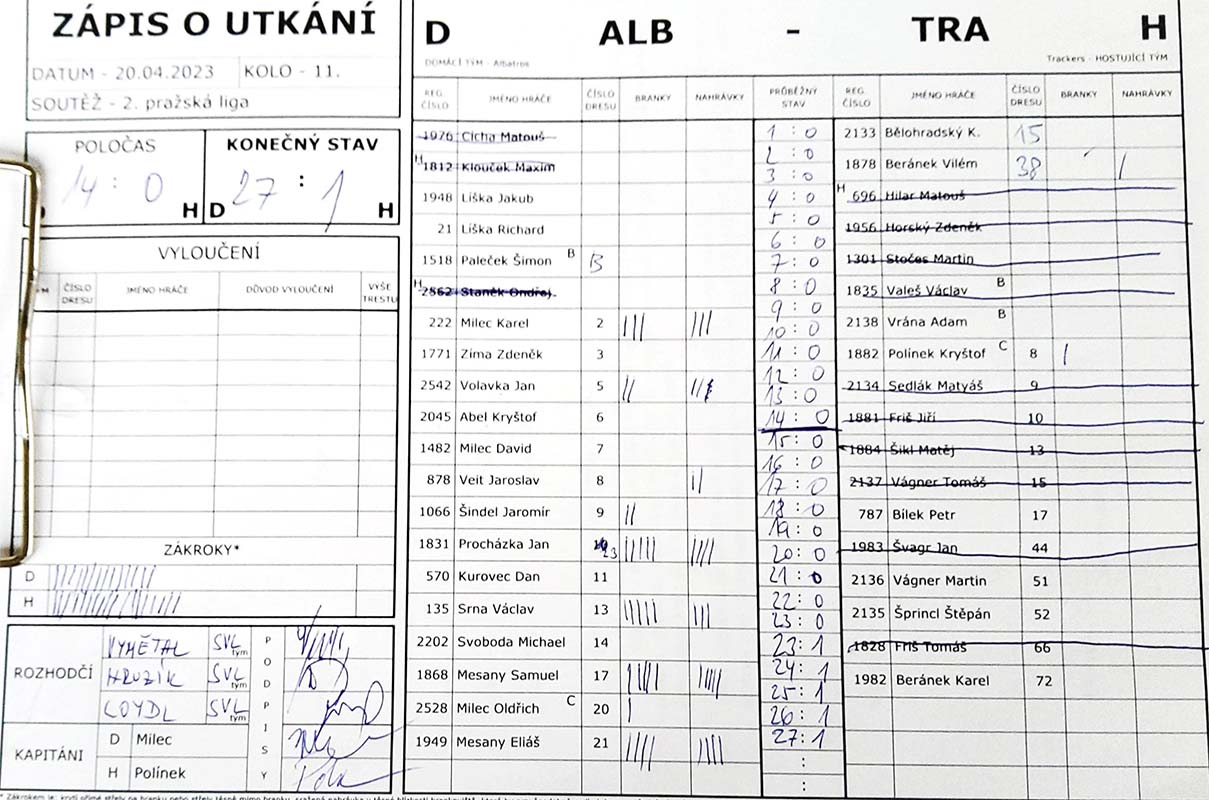 ZÁPIS O UTKÁNÍ
DATUM - 20.04.2023 KOLO - 11.
SOUTĚŽ - 2. pražská liga
POLOČAS KONEČNÝ STAV
14 : 0 27 : 1
H D H
VYLOUČENÍ
ČÍSLO DRESU JMÉNO HRÁČE DŮVOD VYLOUČENÍ VÝŠE TRESTU
ZÁKROKY*
D
H
ROZHODČÍ
VYMĚTAL SVL tým
HRUZÍK SVL tým
LOYDL SVL tým
PODPISY
KAPITÁNI
D Milec
H Polínek
D ALB - TRA H
DOMÁCÍ TÝM - Albatros Trackers - HOSTUJÍCÍ TÝM
REG. ČÍSLO JMÉNO HRÁČE ČÍSLO DRESU BRANKY NAHRÁVKY PRŮBĚŽNÝ STAV REG. ČÍSLO JMÉNO HRÁČE ČÍSLO DRESU BRANKY NAHRÁVKY
1976 Cicha Matouš
H 1812 Klouček Maxim
1948 Liška Jakub
21 Liška Richard
1518 Paleček Šimon B B
H 2562 Staněk Ondřej
222 Milec Karel 2 ||| |||
1771 Zima Zdeněk 3
2542 Volavka Jan 5 ||
2045 Abel Kryštof 6
1482 Milec David 7
878 Veit Jaroslav 8 ||
1066 Šindel Jaromír 9 ||
1831 Procházka Jan 23 ||||| ||||
570 Kurovec Dan 11
135 Srna Václav 13 ||||| |||
2202 Svoboda Michael 14
1868 Mesany Samuel 17
2528 Milec Oldřich C 20 |
1949 Mesany Eliáš 21 |||| ||||
1 : 0
2 : 0
3 : 0
4 : 0
5 : 0
6 : 0
7 : 0
8 : 0
9 : 0
10 : 0
11 : 0
12 : 0
13 : 0
14 : 0
15 : 0
16 : 0
17 : 0
18 : 0
19 : 0
20 : 0
21 : 0
22 : 0
23 : 0
23 : 1
24 : 1
25 : 1
26 : 1
27 : 1
:
:
2133 Bělohradský K. 15
1878 Beránek Vilém 38 |
H 696 Hilar Matouš
1956 Horský Zdeněk
1301 Stočes Martin
1835 Valeš Václav B
2138 Vrána Adam B
1882 Polínek Kryštof C 8 |
2134 Sedlák Matyáš 9
1881 Friš Jiří 10
1884 Šikl Matěj 13
2137 Vágner Tomáš 15
787 Bílek Petr 17
1983 Švagr Jan 44
2136 Vágner Martin 51
2135 Šprincl Štěpán 52
1828 Friš Tomáš 66
1982 Beránek Karel 72